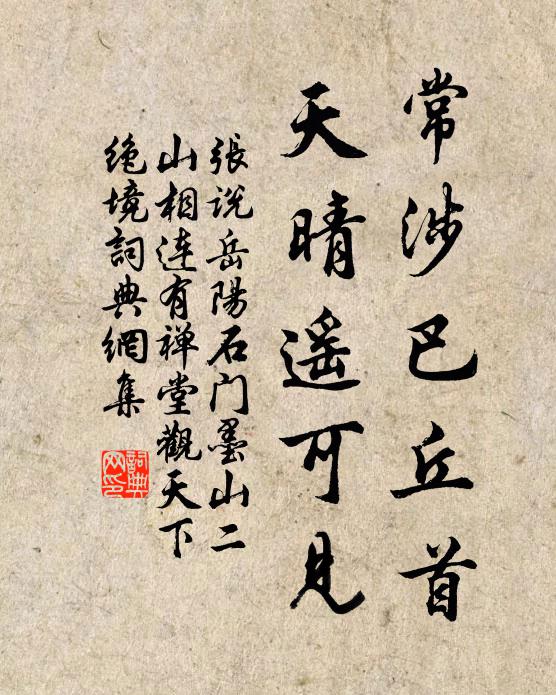 常涉巴丘首
天晴遥可見
張说岳陽石门墨山二
山相连有禅堂觀天下
绝境詞典網集
詞典
网印